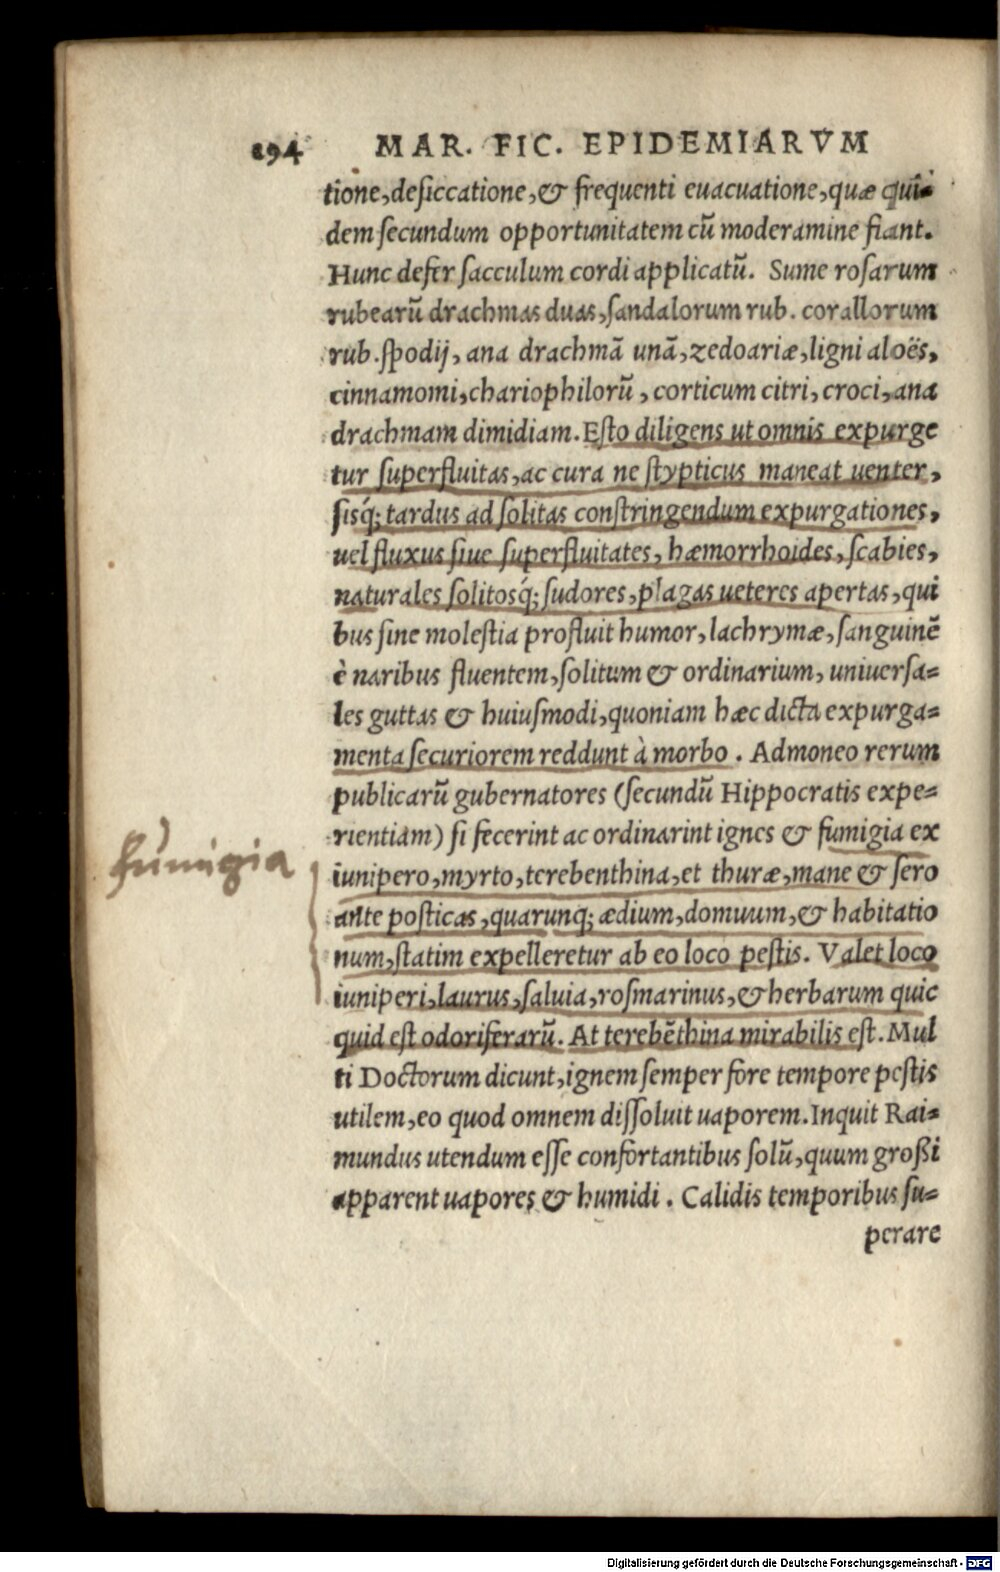 294 MAR. FIC. EPIDEMIARVM
tione, desiccatione, & frequenti euacuatione, quæ qui-
dem secundum opportunitatem cũ moderamine fiant.
Hunc defer sacculum cordi applicatũ. Sume rosarum
rubearũ drachmas duas, sandalorum rub. corallorum
rub. spodij, ana drachmã unã, zedoariæ, ligni aloës,
cinnamomi, chariophilorũ, corticum citri, croci, ana
drachmam dimidiam. Esto diligens ut omnis expurge
tur superfluitas, ac cura ne stypticus maneat uenter,
sisq́; tardus ad solitas constringendum expurgationes,
uel fluxus siue superfluitates, hæmorrhoides, scabies,
naturales solitosq́; sudores, plagas ueteres apertas, qui
bus sine molestia profluit humor, lachrymæ, sanguinẽ
è naribus fluentem, solitum & ordinarium, uniuersa-
les guttas & huiusmodi, quoniam hæc dicta expurga-
menta securiorem reddunt à morbo. Admoneo rerum
publicarũ gubernatores (secundũ Hippocratis expe-
rientiam) si fecerint ac ordinarint ignes & fumigia ex
fumigia
iunipero, myrto, terebenthina, et thuræ, mane & sero
ante posticas, quarunq; ædium, domuum, & habitatio
num, statim expelleretur ab eo loco pestis. Valet loco
iuniperi, laurus, saluia, rosmarinus, & herbarum quic
quid est odoriferarũ. At terebẽthina mirabilis est. Mul
ti Doctorum dicunt, ignem semper fore tempore pestis
utilem, eo quod omnem dissoluit uaporem. Inquit Rai-
mundus utendum esse confortantibus solũ, quum großi
apparent uapores & humidi. Calidis temporibus su-
perare
Digitalisierung gefördert durch die Deutsche Forschungsgemeinschaft - DFG